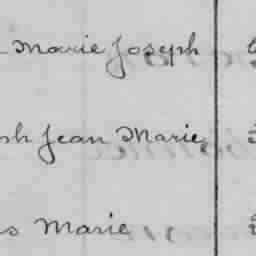 Marie Joseph
ph Jean Marie
s Marie